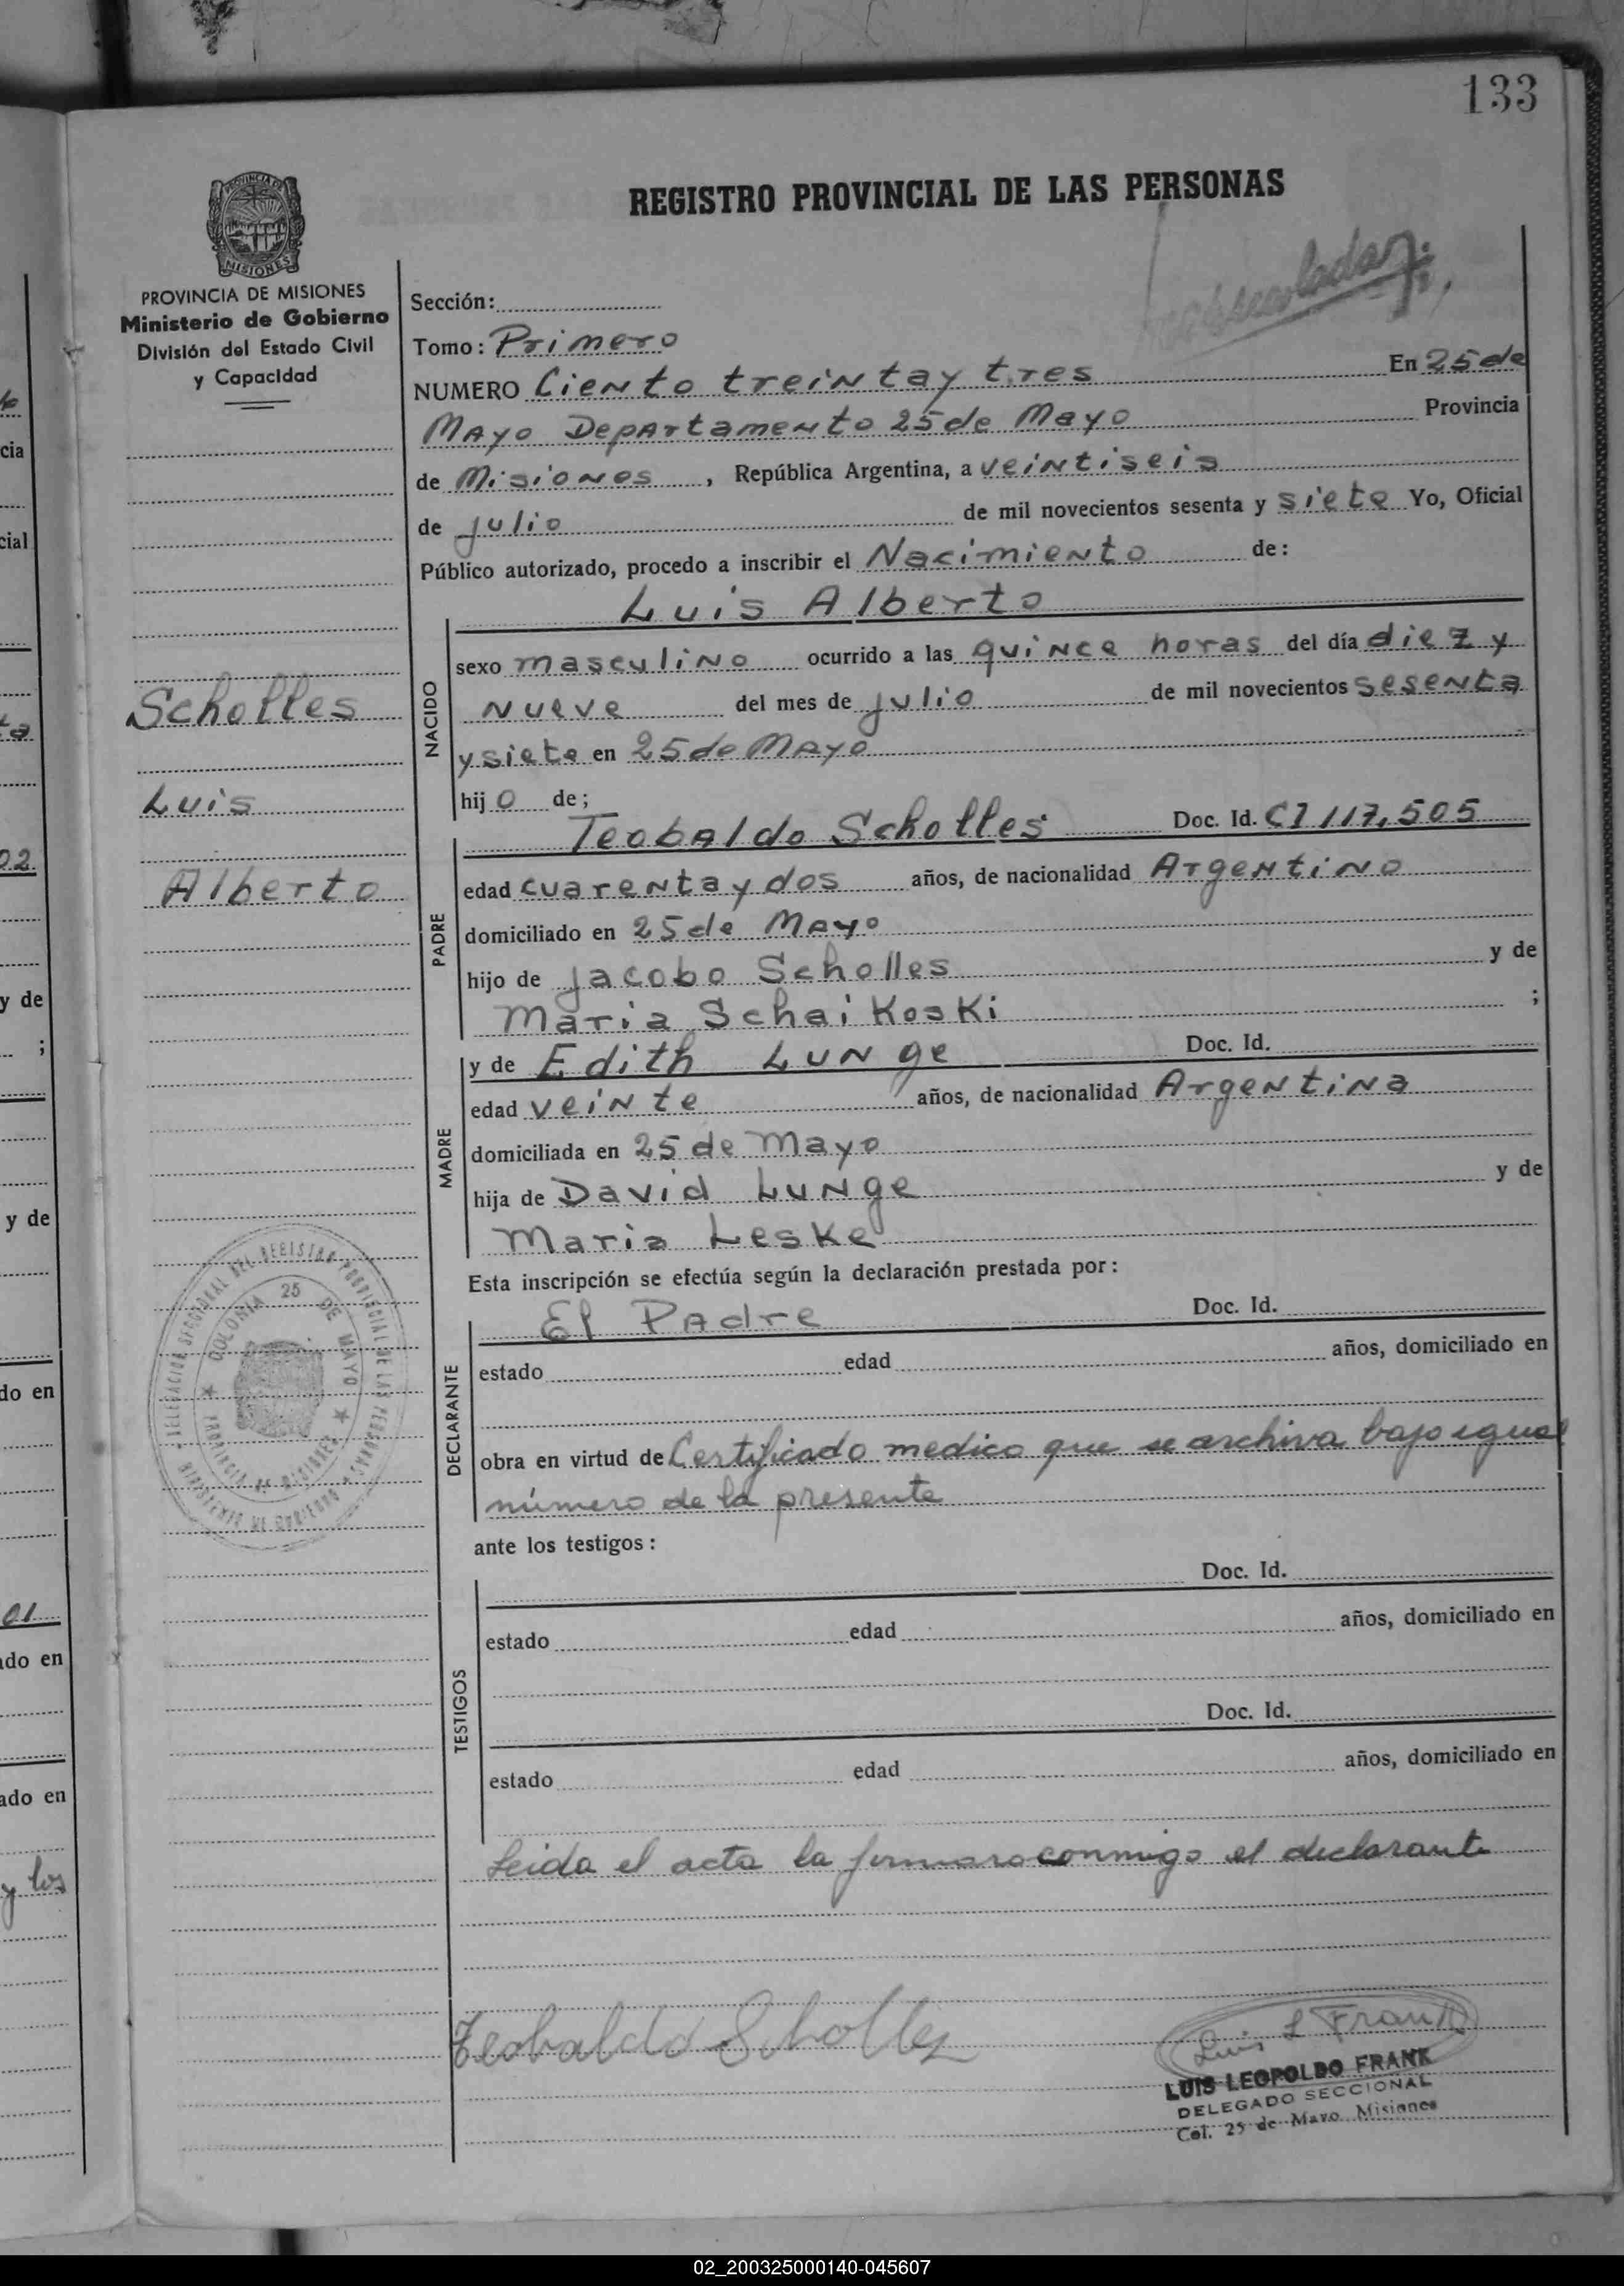 133
REGISTRO PROVINCIAL DE LAS PERSONAS
PROVINCIA DE MISIONES
Ministerio de Gobierno
División del Estado Civil
y Capacidad
Sección:
Tomo: Primero
NUMERO Ciento treintay tres En 25 de
Mayo Departamento 25 de Mayo Provincia
de Misiones, República Argentina, a veintiseis
de julio de mil novecientos sesenta y siete Yo, Oficial
Público autorizado, procedo a inscribir el Nacimiento de:
Luis Alberto
NACIDO
sexo masculino ocurrido a las quince horas del día diez y
nueve del mes de julio de mil novecientos sesenta
y siete en 25 de Mayo
hijo de;
Scholles
Luis
Alberto
PADRE
Teobaldo Scholles Doc. Id. CI 117,505
edad cuarenta y dos años, de nacionalidad Argentino
domiciliado en 25 de Mayo
hijo de Jacobo Scholles y de
Maria Schaikoski ;
MADRE
y de Edith Lunge Doc. Id.
edad veinte años, de nacionalidad Argentina
domiciliada en 25 de Mayo
hija de David Lunge y de
Maria Leske
Esta inscripción se efectúa según la declaración prestada por:
DECLARANTE
El Padre Doc. Id.
estado edad años, domiciliado en
obra en virtud de Certificado medico que se archiva bajo igual
número de la presente
DELEGACION SECCIONAL DEL REGISTRO PROVINCIAL DE LAS PERSONAS
MINISTERIO DE GOBIERNO
COLONIA 25 DE MAYO
PROVINCIA DE MISIONES
ante los testigos:
TESTIGOS
Doc. Id.
estado edad años, domiciliado en
Doc. Id.
estado edad años, domiciliado en
Leida el acta la firmara conmigo el declarante
Teobaldo Scholles
Luis L Frank
LUIS LEOPOLDO FRANK
DELEGADO SECCIONAL
Col. 25 de Mayo Misiones
cia
cial
02
y de
;
y de
do en
01
ado en
ado en
y los
02_200325000140-045607